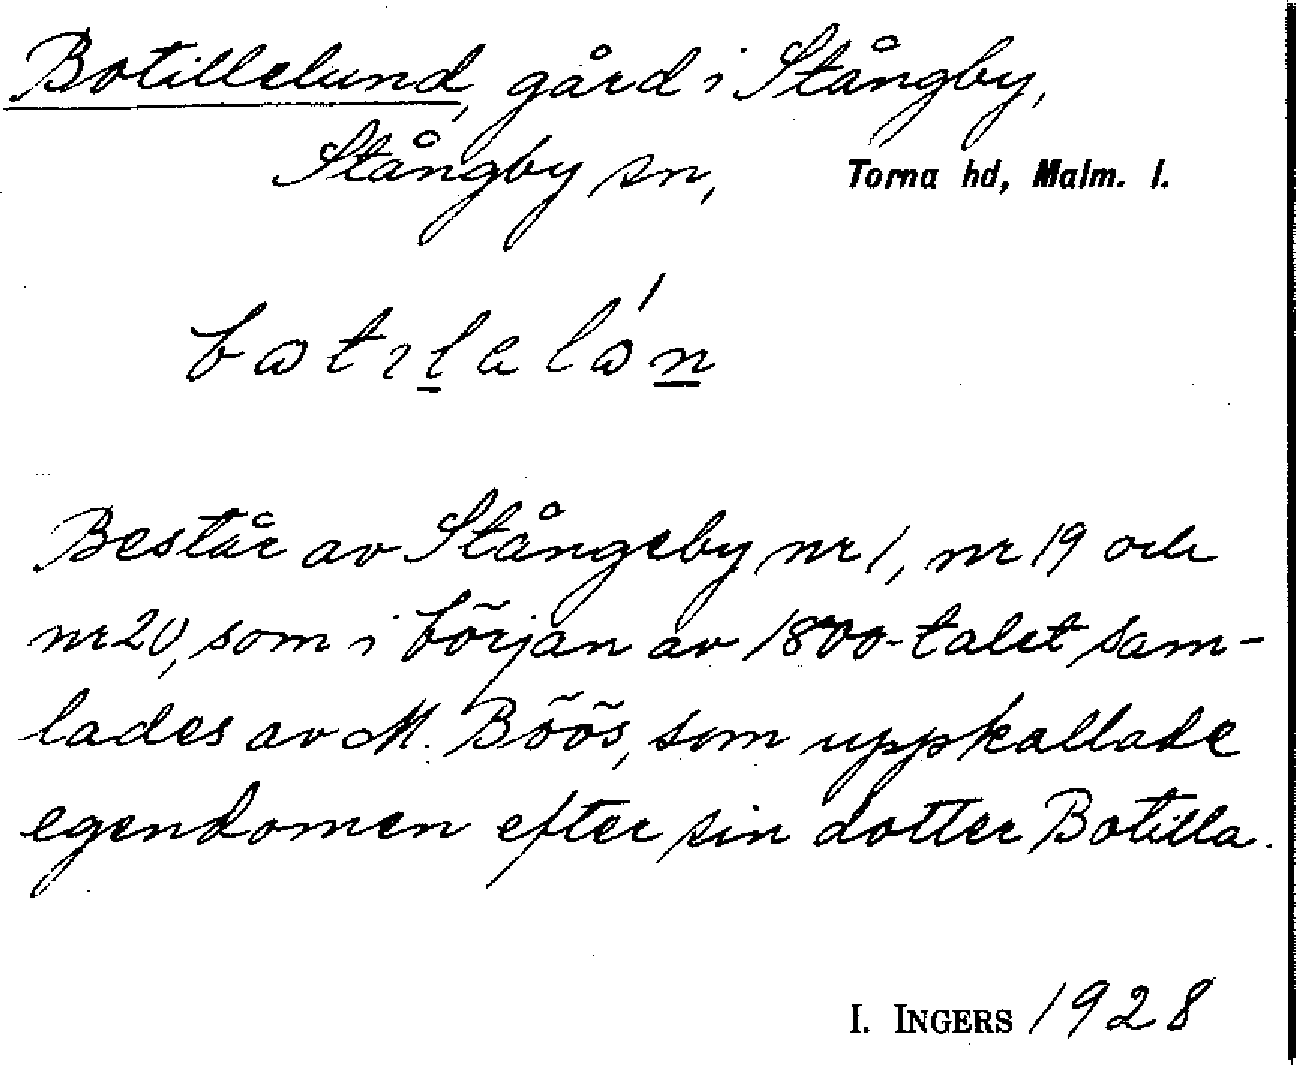 Botillelund, gård i Stångby,
Stångby sn, Torna hd, Malm. l.
Består av Stångeby nr 1, nr 19 och
nr 20, som i början av 1800-talet sam-
lades av M. Böös, som uppkallade
egendomen efter sin dotter Botilla.
I. INGERS 1928